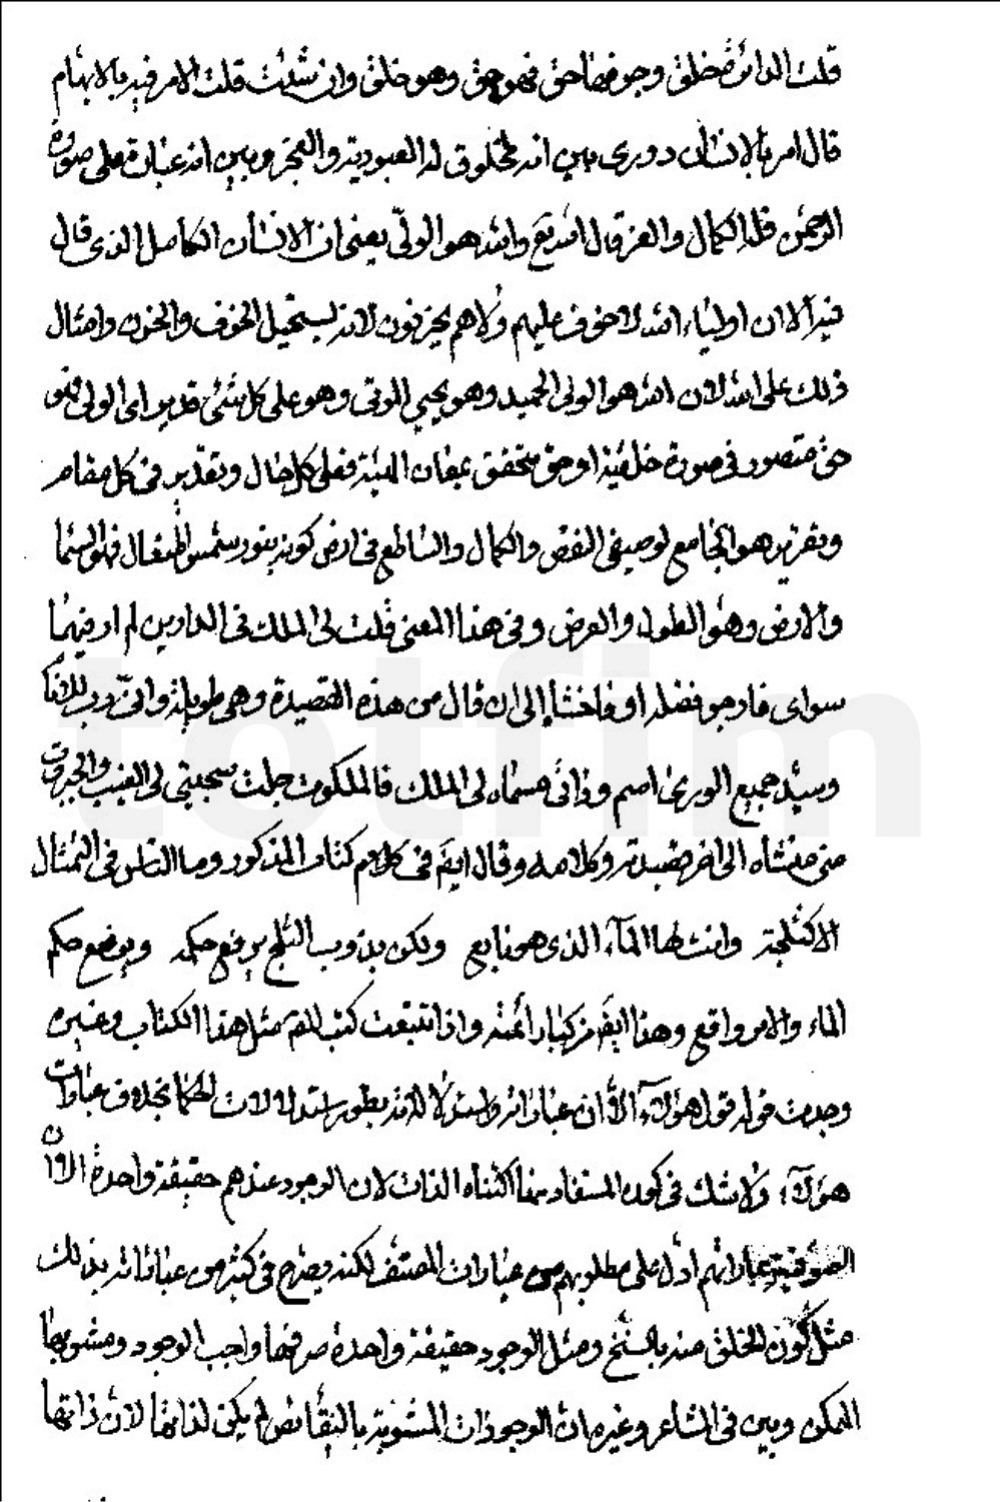 قلت الدائرة خلق وجوفها حق فهو حق وهو خلق وان شئت قلت الامر فيه بالابهام
قال امر بالانسان دورى بين انه مخلوق له العبودية والعجز وبين انه عبارة على صورة
الرحمن فله الكمال والعز قال الله تع والله هو الولىّ يعنى ان الانسان الكامل الذى قال
فيه الا ان اولياء الله لا خوف عليهم ولا هم يحزنون لانه يستحيل الخوف والحزن وامثال
ذلك على الله لان الله هو الولى الحميد وهو يحيى الموتى وهو على كل شئ قدير اى الولى فهو
حق متصور فى صورة خلقية او حق متحقق بمعان الهية فعلى كل حال وتقدير فى كل مقام
وتقرير هو الجامع لوصفى النقص والكمال والساطع فى ارض كونه بنور شمس المتعال فهو السما
والارض وهو الطول والعرض وفى هذا المعنى قلت لى الملك فى الدارين لم ار فيهما
سواى فارجو فضله او فاخشاه الى ان قال من هذه القصيدة وهى طويلة وانى رب للانام
وسيد جميع الورى اسم وذاتى مسماه لى الملك فالملكوت جلت سجيتى لى الغيب والجبروت
منى منشأه الى اخر قصيدته وكلامه وقال ايضَ فى كتاب المذكور وما الناس فى التمثال
الا كثلجة وانت لها المآء الذى هو نابع ولكن بذوب الثلج يرفع حكمه ويوضع حكم
الماء والامر واقع وهذا ايضَ من كبار أئمته واذا تتبعت كتب القوم مثل هذا الكتاب وغيره
وجدت قوله قول هؤلآء الا ان عباراته واستدلالاته بطور استدلالات الحكما بخلاف عبارات
هؤلآء ولا شك فى كون المستفاد منها اكتناه الذات لان الوجود عندهم حقيقة واحدة الا ان
الصوفية عباراتهم ادل على مطلوبهم من عبارات المصنف لكنه يصرح فى كثير من عباراته بذلك
مثل كون الخلق منه بالسنخ ومثل الوجود حقيقة واحدة صرفها واجب الوجود ومشوبها
الممكن وبين فى المشاعر وغيره ان الوجودات المشوبة بالنقائص لم يكن لذاتها لان ذاتها